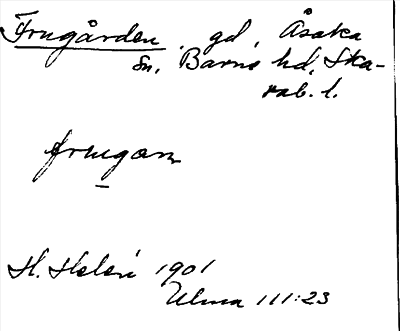 Frugården, gd, Åsaka
Sn, Barne hd, Ska-
rab. l.
frugan
H. Helén 1901
Ulma 111:23